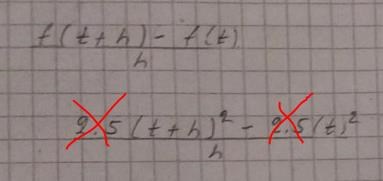 f(t+h) - f(t)
h
2.5(t+h)² - 2.5(t)²
h